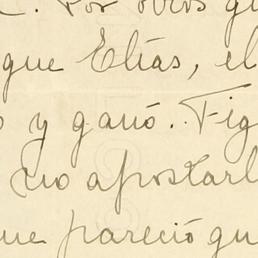 . Por otros
que Elías, el
y ganó. Fig
no apostarl
ue pareció qu